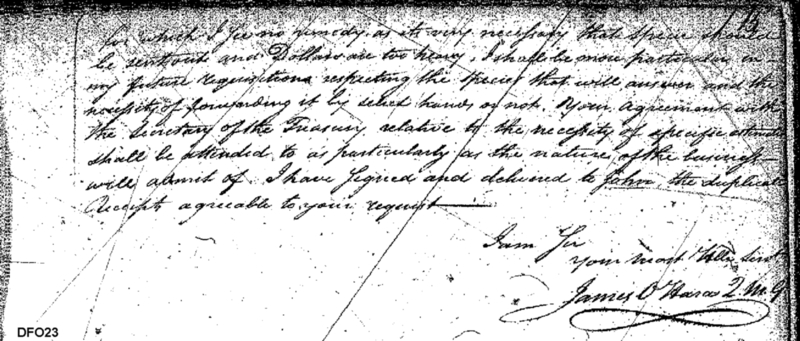 13
for which I see no remedy, as its very necessary that specie should
be sent out and Dollars are too heavy, I shall be more particular in
my future requisitions respecting the specie that will answer and the
necessity of forwarding it by select hands or not. Your Agreement with
the Secretary of the Treasury relative to the necessity of specific
shall be attended to as particularly as the nature of the business
will admit of. I have Signed and delivered to John, the duplicate
Receipts agreable to your request
I am Sir
your most Hble Servt
James O'Hara Q.M.G
DFO23